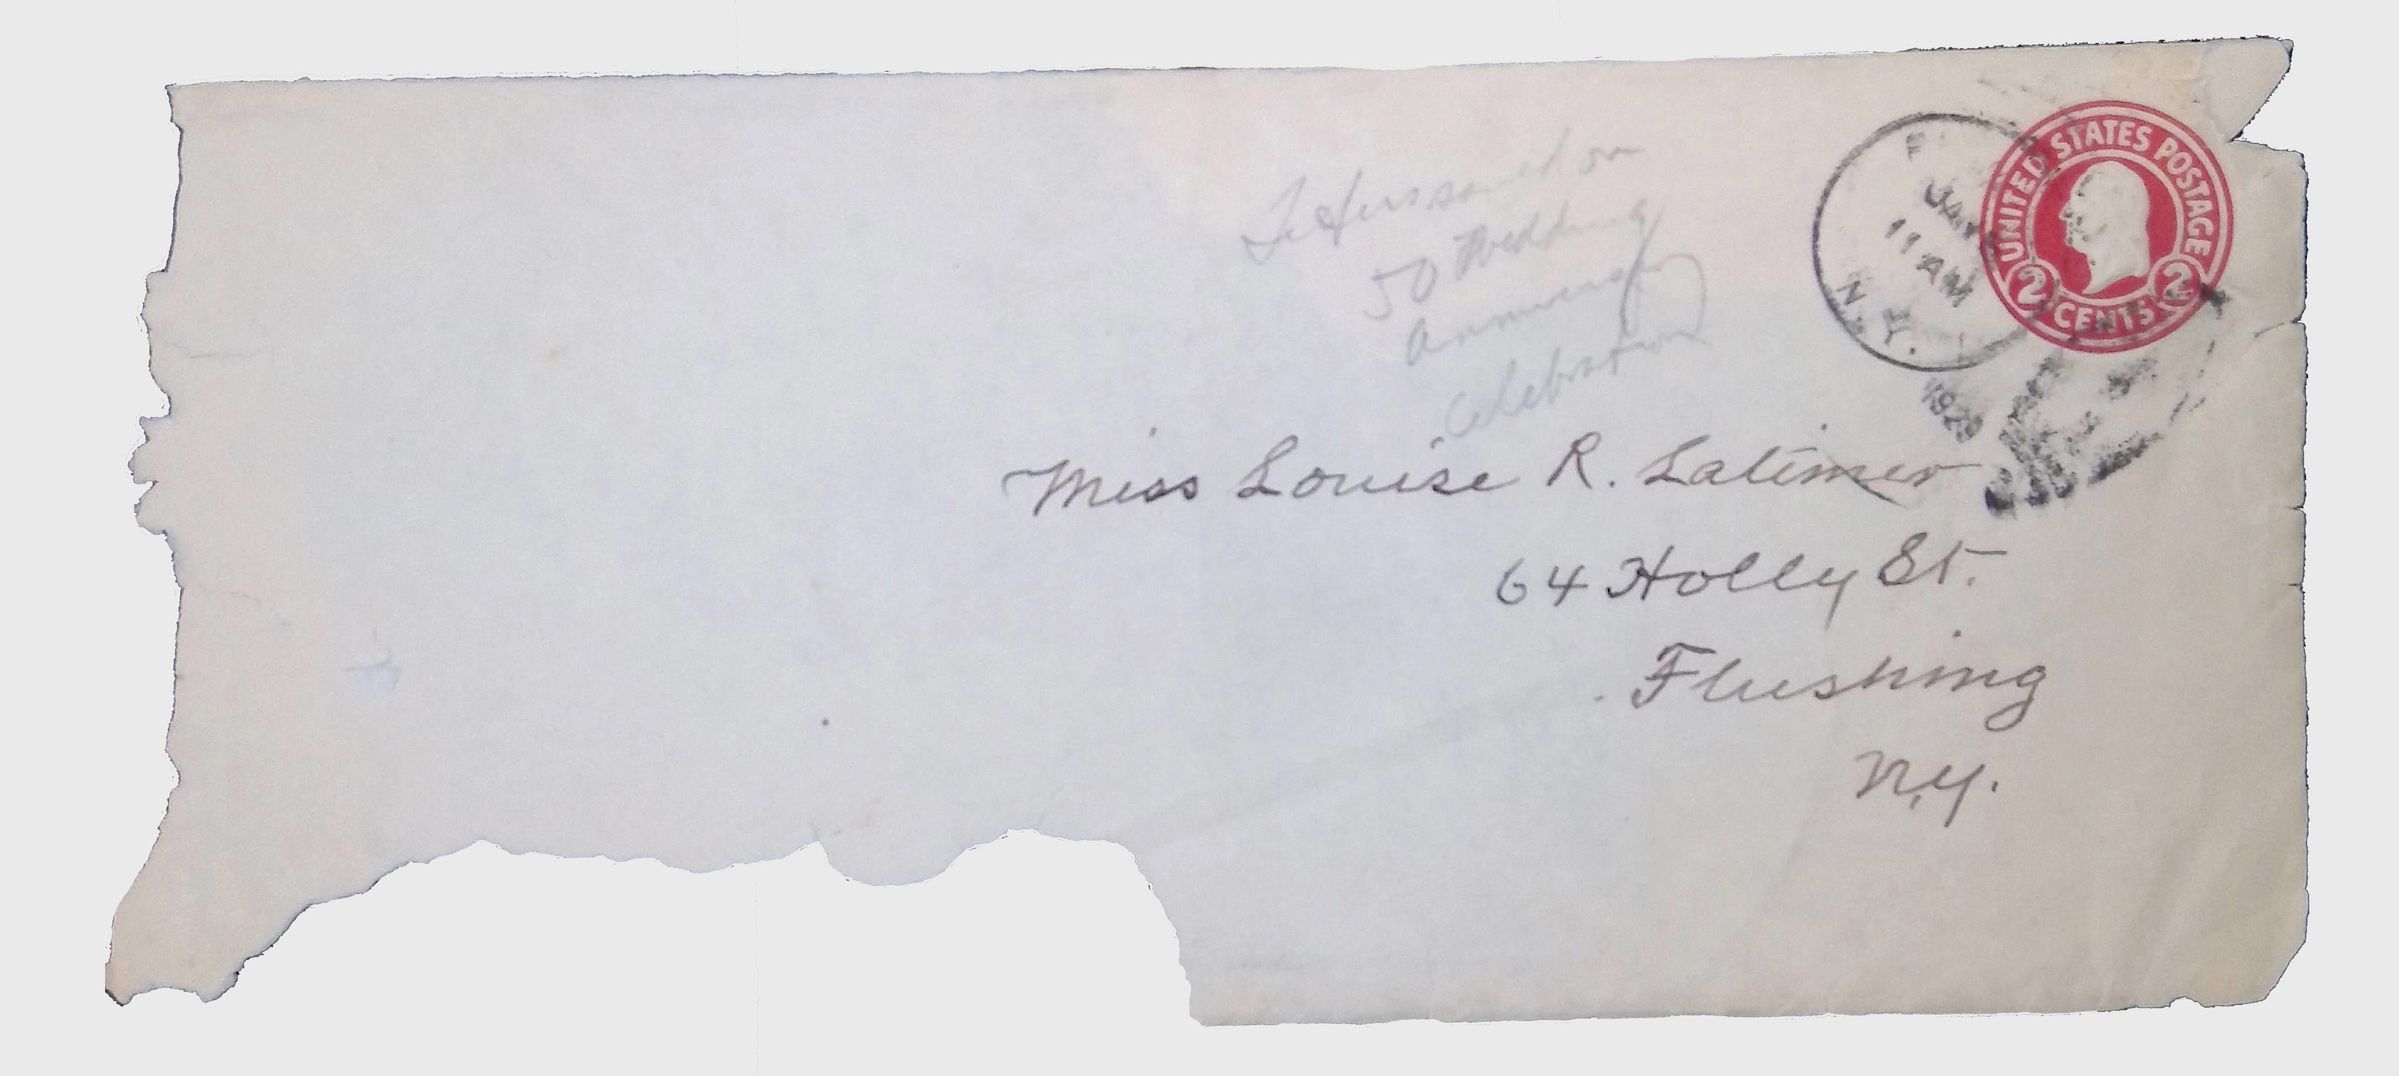 on
50 Wedding
Anniversary
Celebration
UNITED STATES POSTAGE
2 CENTS 2
JAN
11 AM
N.Y.
1929
Miss Louise R. Latimer
64 Holly St.
Flushing
N.Y.